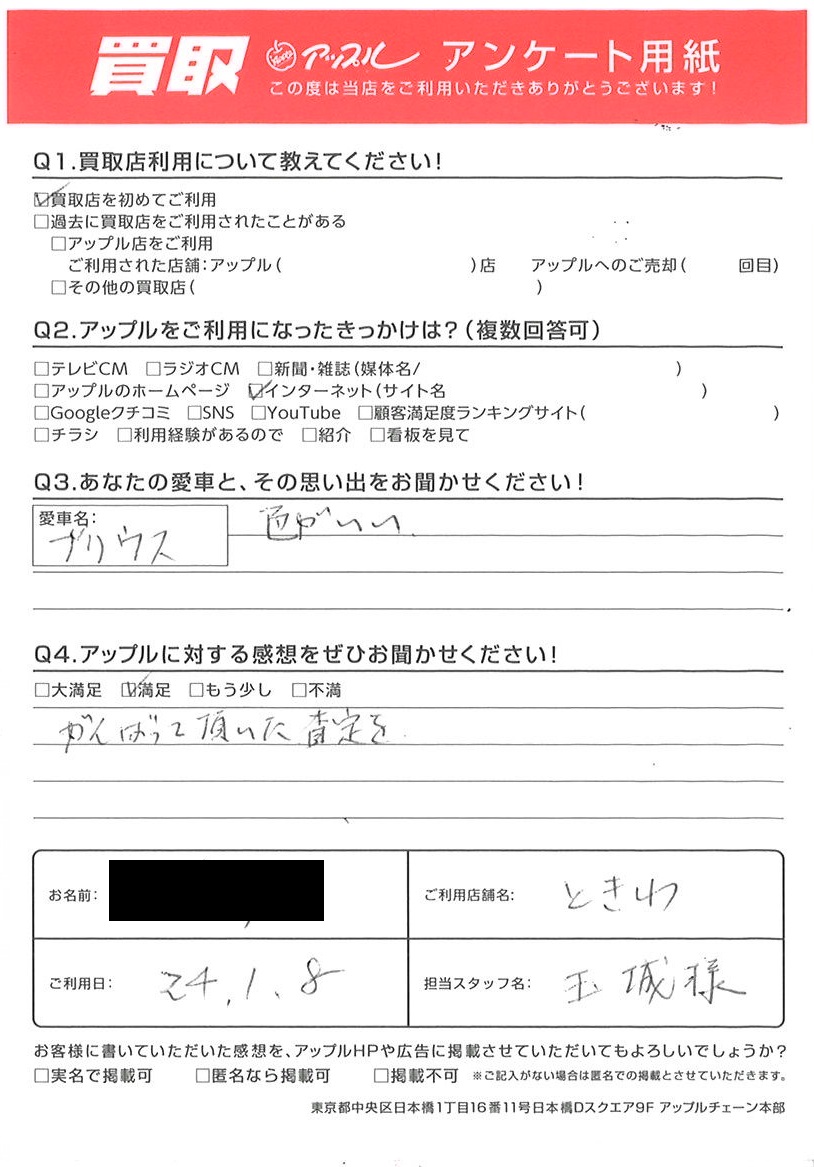 買取 アップル アンケート用紙
この度は当店をご利用いただきありがとうございます!
Q1.買取店利用について教えてください!
☑買取店を初めてご利用
□過去に買取店をご利用されたことがある
□アップル店をご利用
ご利用された店舗:アップル( )店 アップルへのご売却( 回目)
□その他の買取店( )
Q2.アップルをご利用になったきっかけは?(複数回答可)
□テレビCM □ラジオCM □新聞・雑誌(媒体名/ )
□アップルのホームページ ☑インターネット(サイト名 )
□Googleクチコミ □SNS □YouTube □顧客満足度ランキングサイト( )
□チラシ □利用経験があるので □紹介 □看板を見て
Q3.あなたの愛車と、その思い出をお聞かせください!
愛車名:
プリウス 色がいい
Q4.アップルに対する感想をぜひお聞かせください!
□大満足 ☑満足 □もう少し □不満
がんばって頂いた査定を
お名前: ご利用店舗名: ときわ
ご利用日: 24.1.8 担当スタッフ名: 玉城様
お客様に書いていただいた感想を、アップルHPや広告に掲載させていただいてもよろしいでしょうか?
□実名で掲載可 □匿名なら掲載可 □掲載不可 ※ご記入がない場合は匿名での掲載とさせていただきます。
東京都中央区日本橋1丁目16番11号日本橋Dスクエア9F アップルチェーン本部